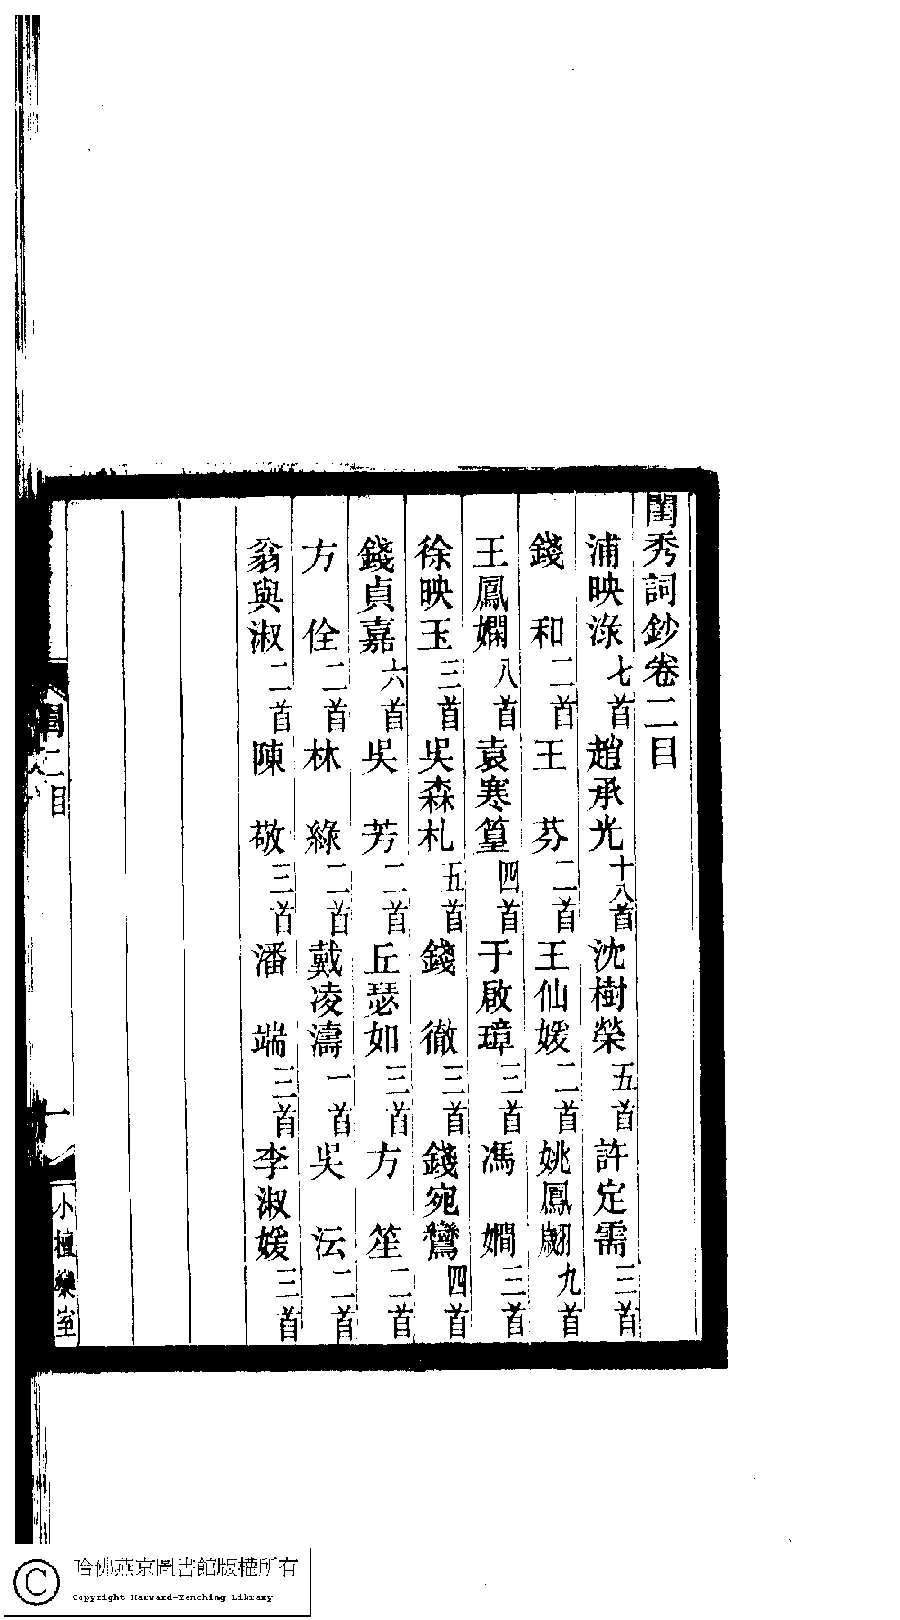 閨秀詞鈔卷二目
浦映淥七首 趙承光十八首 沈樹榮五首 許定需三首
錢和二首 王芬二首 王仙媛二首 姚鳳翽九首
王鳳嫻八首 袁寒篁四首 于啟璋三首 馮嫺三首
徐映玉三首 吳森札五首 錢徹三首 錢宛鸞四首
錢貞嘉六首 吳芳二首 丘瑟如三首 方笙二首
方佺二首 林綠二首 戴凌濤一首 吳沄二首
翁與淑二首 陳敬三首 潘端三首 李淑媛三首
閨二目
一
小檀欒室
哈佛燕京圖書館版權所有
Copyright Harvard-Yenching Library